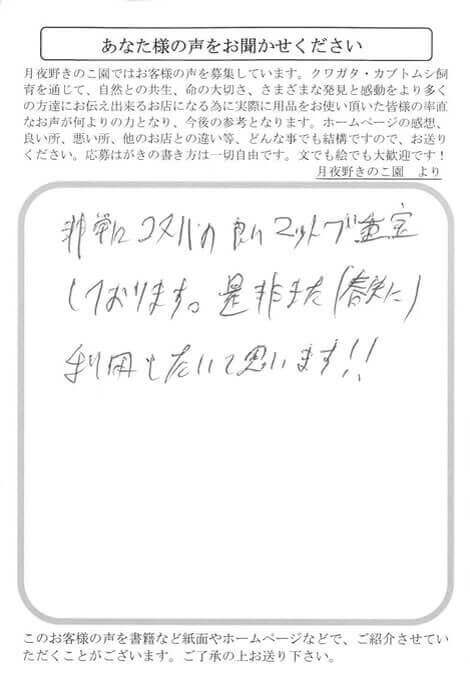 あなた様の声をお聞かせください
月夜野きのこ園ではお客様の声を募集しています。クワガタ・カブトムシ飼
育を通じて、自然との共生、命の大切さ、さまざまな発見と感動をより多く
の方達にお伝え出来るお店になる為に実際に用品をお使い頂いた皆様の率直
なお声が何よりの力となり、今後の参考となります。ホームページの感想、
良い所、悪い所、他のお店との違い等、どんな事でも結構ですので、お送り
ください。応募はがきの書き方は一切自由です。文でも絵でも大歓迎です！
月夜野きのこ園　より
非常に コスパの良いマットで重宝
しております。是非また(春先に)
利用したいと思います!!
このお客様の声を書籍など紙面やホームページなどで、ご紹介させてい
ただくことがございます。ご了承の上お送り下さい。